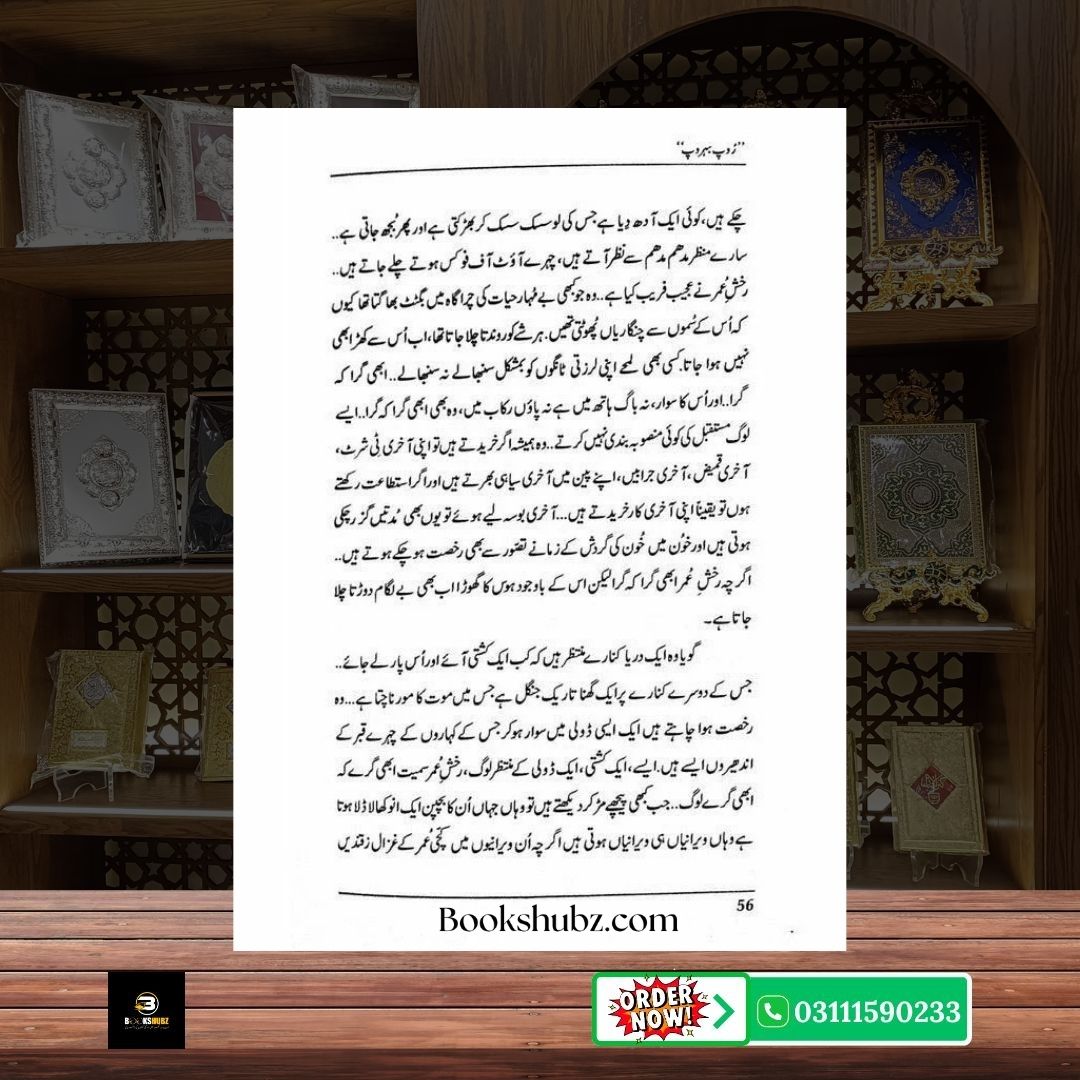 ’’رُوپ بہروپ‘‘
چکے ہیں، کوئی ایک آدھ دِیا ہے جس کی لو سسک سسک کر بھڑکتی ہے اور پھر بُجھ جاتی ہے..
سارے منظر مدھم مدھم سے نظر آتے ہیں، چہرے آؤٹ آف فوکس ہوتے چلے جاتے ہیں..
رخشِ عُمر نے عجیب فریب کیا ہے..وہ جو کبھی بے مُہار حیات کی چراگاہ میں بگٹٹ بھاگتا تھا کیوں
کہ اُس کے سُموں سے چنگاریاں پُھوٹتی تھیں. ہر شے کو روندتا چلا جاتا تھا، اب اُس سے کھڑا بھی
نہیں ہوا جاتا. کسی بھی لمحے اپنی لرزتی ٹانگوں کو بمشکل سنبھالے نہ سنبھالے..ابھی گرا کہ
گرا..اور اُس کا سوار، نہ باگ ہاتھ میں ہے نہ پاؤں رکاب میں، وہ بھی ابھی گرا کہ گرا..ایسے
لوگ مستقبل کی کوئی منصوبہ بندی نہیں کرتے..وہ ہمیشہ اگر خریدتے ہیں تو اپنی آخری ٹی شرٹ،
آخری قمیض، آخری جرابیں، اپنے پین میں آخری سیاہی بھرتے ہیں اور اگر استطاعت رکھتے
ہوں تو یقیناً اپنی آخری کار خریدتے ہیں...آخری بوسہ لیے ہوئے تو یوں بھی مُدتیں گزر چکی
ہوتی ہیں اور خُون میں خُون کی گردش کے زمانے تصوّر سے بھی رخصت ہو چکے ہوتے ہیں..
اگرچہ رخشِ عُمر ابھی گرا کہ گرا لیکن اس کے باوجود ہوس کا گھوڑا اب بھی بے لگام دوڑتا چلا
جاتا ہے۔
گویا وہ ایک دریا کنارے منتظر ہیں کہ کب ایک کشتی آئے اور اُس پار لے جائے..
جس کے دوسرے کنارے پر ایک گھنا تاریک جنگل ہے جس میں موت کا مور ناچتا ہے...وہ
رخصت ہوا چاہتے ہیں ایک ایسی ڈولی میں سوار ہو کر جس کے کہاروں کے چہرے قبر کے
اندھیروں ایسے ہیں. ایسے، ایک کشتی، ایک ڈولی کے منتظر لوگ، رخشِ عُمر سمیت ابھی گرے کہ
ابھی گرے لوگ..جب کبھی پیچھے مڑ کر دیکھتے ہیں تو وہاں جہاں اُن کا بچپن ایک انوکھا لاڈلا ہوتا
ہے وہاں ویرانیاں ہی ویرانیاں ہوتی ہیں اگرچہ اُن ویرانیوں میں کچّی عُمر کے غزال زقندیں
56
Bookshubz.com
BOOKSHUBZ
ORDER
NOW!
03111590233